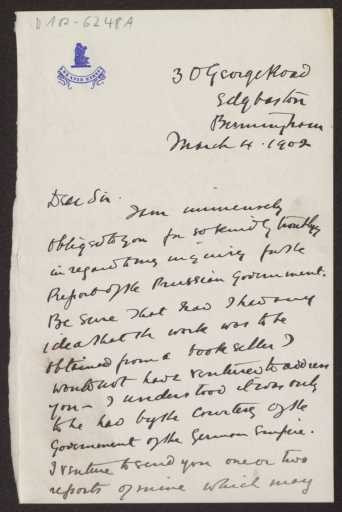 D 102-6248A
30 George Road
Edgbaston
Birmingham
March 4. 1902
Dear Sir.
I am immensely
obliged to you for so kindly troubling
in regard to my inquiry for the
Report of the Prussian Government.
Be sure that had I had any
idea that the work was to be
obtained from a bookseller I
would not have ventured to address
you - I understood it was only
to be had by the courtesy of the
Government of the German Empire.
I venture to send you one or two
reports of mine which may